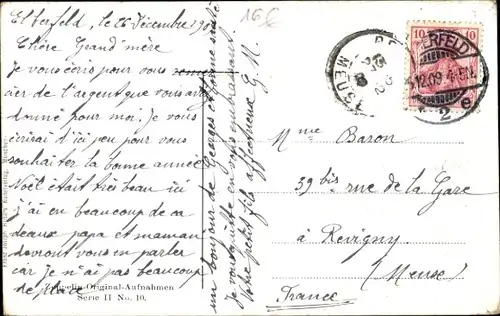 Elberfeld, le 26 Décembre 190
Chère Grand'mère
Je vous écris pour vous remer
cier de l'argent que vous avez
donné pour moi. Je vous
écrirai d'ici peu pour vous
souhaiter la bonne année
Noël était très beau ici
j'ai eu beaucoup de ca
deaux papa et maman
devront vous en parler
car je n'ai pas beaucoup
de place
un bonjour de Georges et bonne santé
Je vous quitte en vous embrassant
Votre petit fils affectueux G. M.
16€
10 10
ERFELD
12.09 4-5
2 e
MEUSE
Mme Baron
39 bis rue de la Gare
à Revigny
(Meuse)
France
Zeppelin-Original-Aufnahmen
Serie II No. 10.